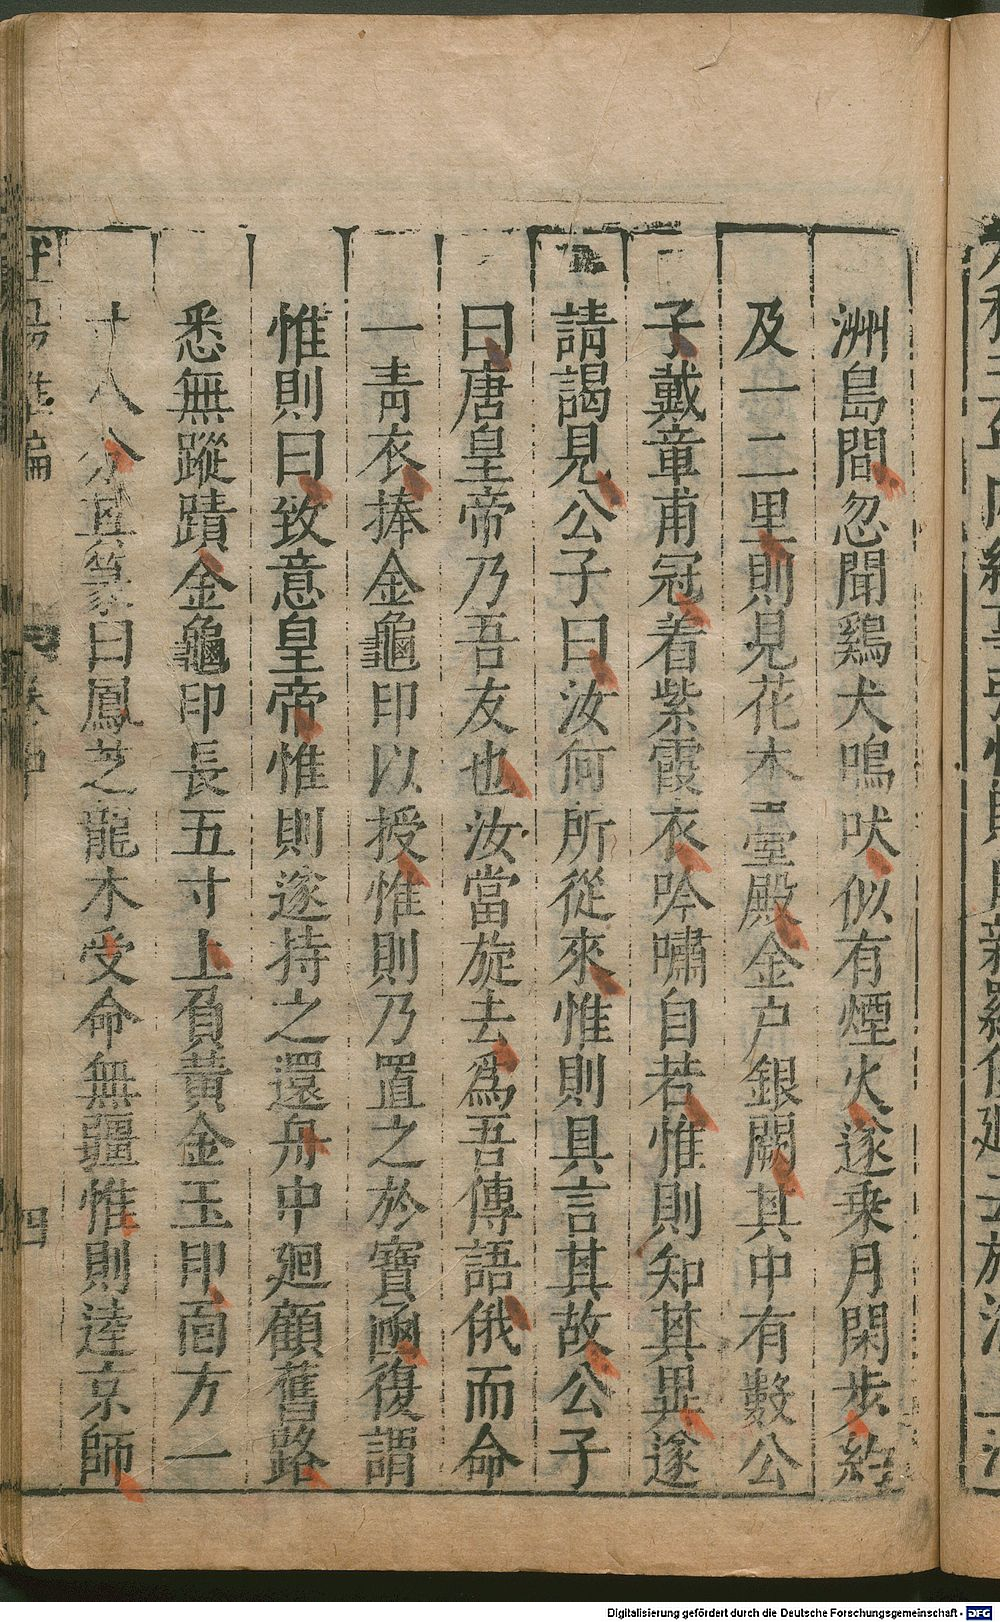 洲島間忽聞鷄犬鳴吠似有煙火遂乗月閑步約
及一二里則見花木臺殿金户銀闕其中有數公
子戴章甫冠着紫霞衣吟嘯自若惟則知其異遂
請謁見公子曰汝何所從來惟則具言其故公子
曰唐皇帝乃吾友也汝當旋去爲吾傳語俄而命
一青衣捧金龜印以授惟則乃置之於寶函復謂
惟則曰致意皇帝惟則遂持之還舟中廻顧舊路
悉無蹤蹟金龜印長五寸上負黃金玉印面方一
寸八分其篆曰鳳芝龍木受命無疆惟則達京師
杜陽雜編
卷中
四
Digitalisierung gefördert durch die Deutsche Forschungsgemeinschaft - DFG